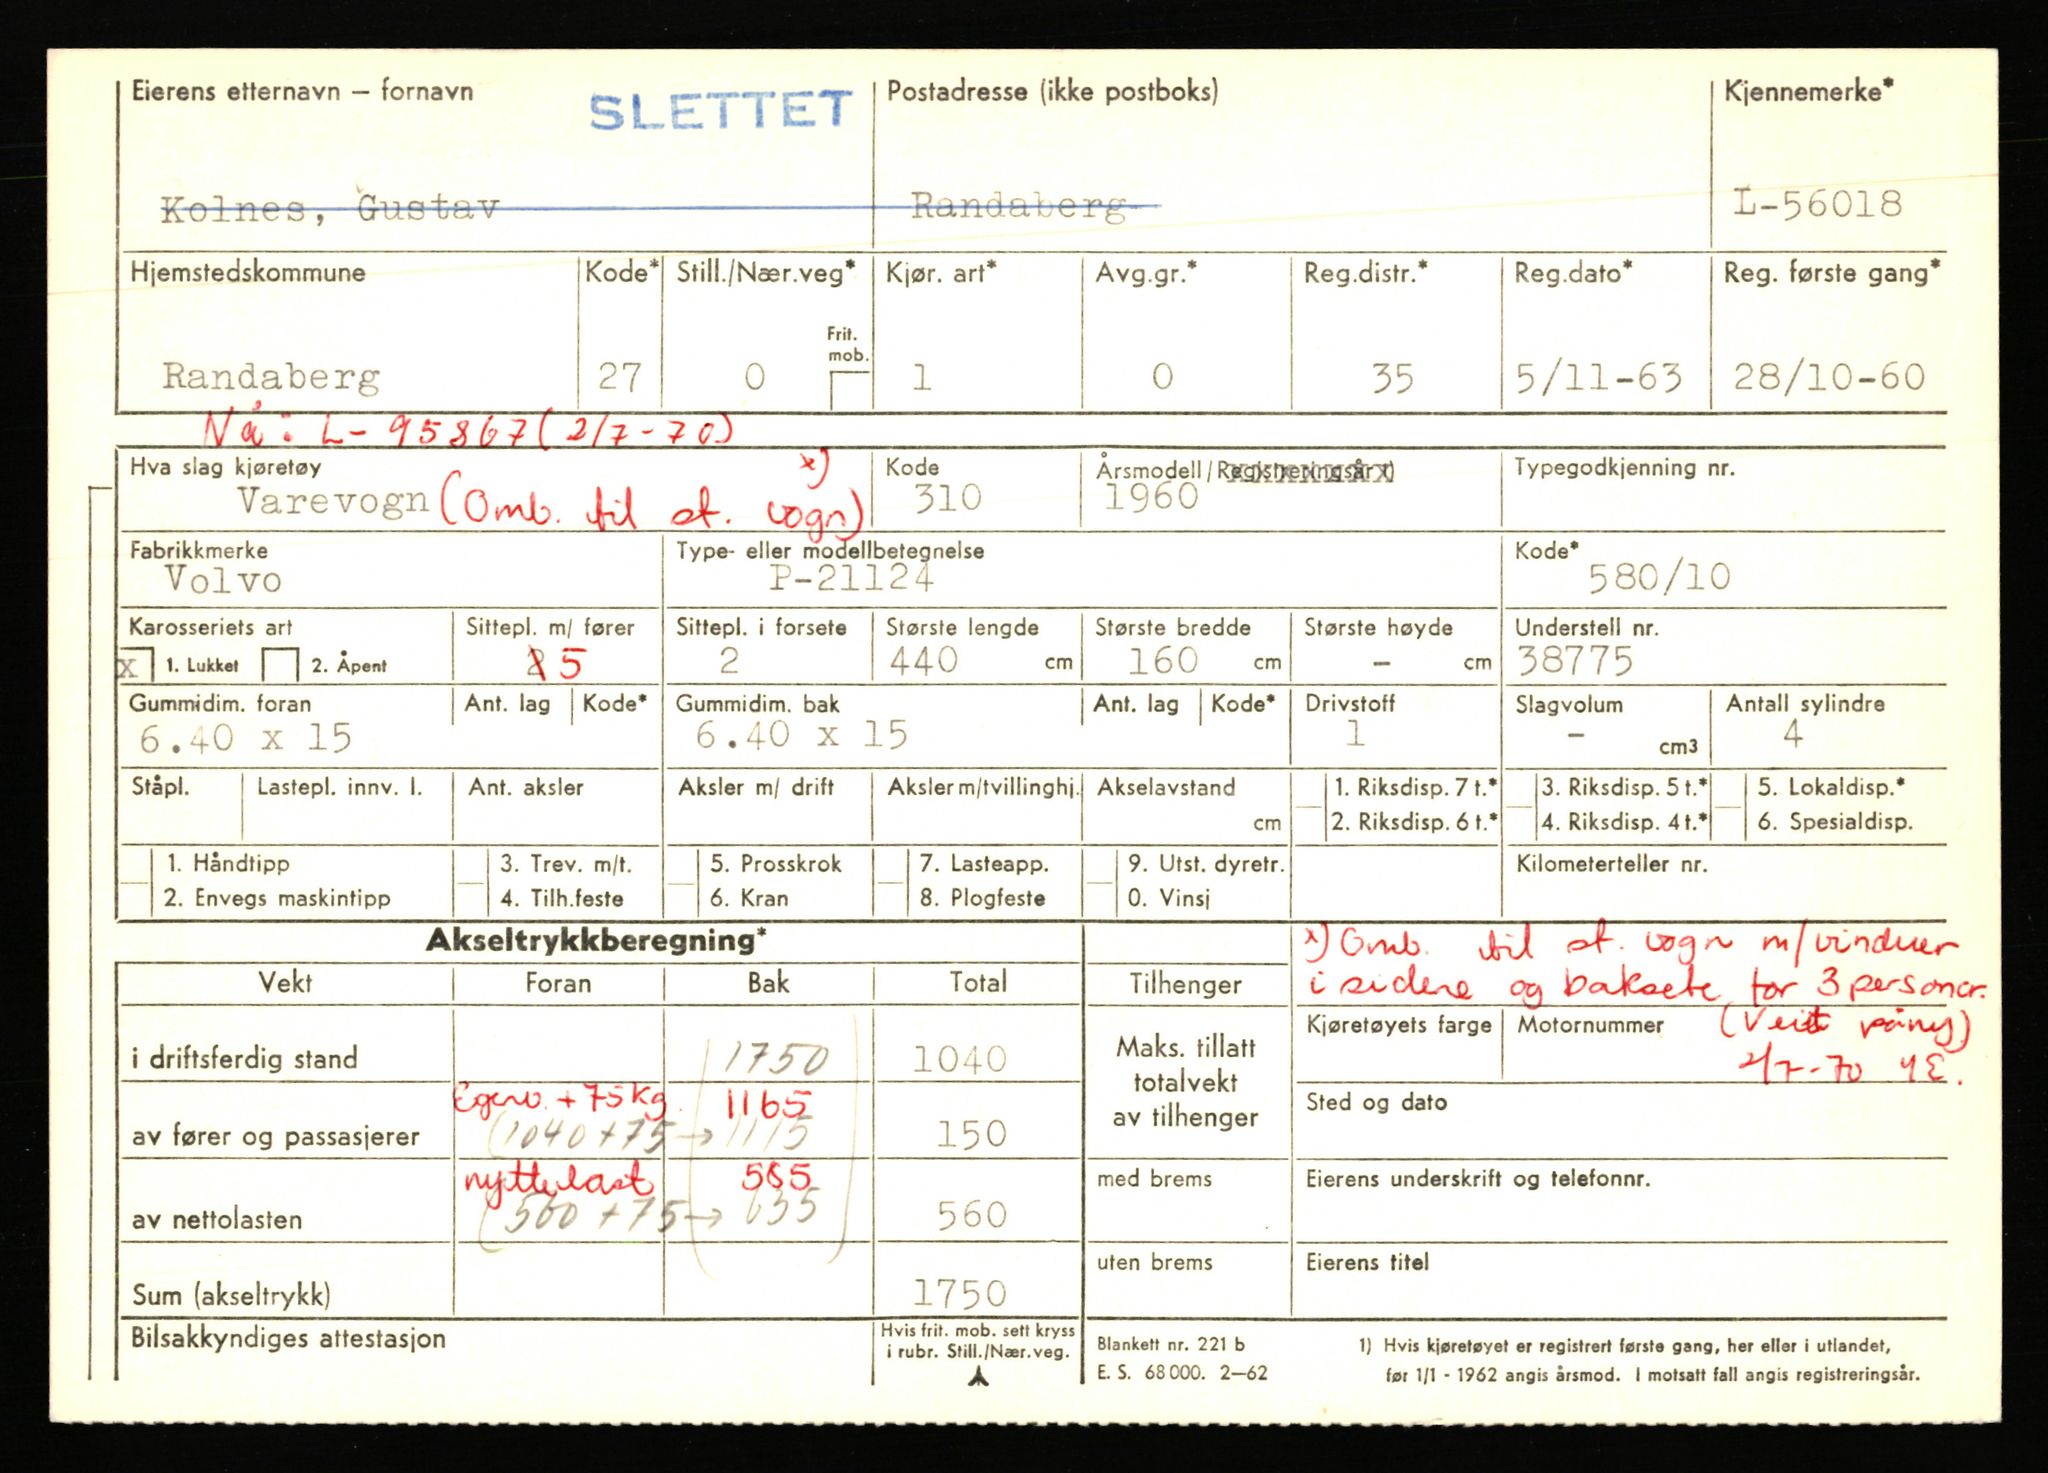 Eierens etternavn — fornavn SLETTET Postadresse (ikke postboks) Kjennemerke*
Kolnes, Gustav Randaberg L-56018
Hjemstedskommune Kode* Still./Nær.veg* Kjør. art* Avg.gr.* Reg.distr.* Reg.dato* Reg. første gang*
Frit. mob.
Randaberg 27 0 1 0 35 5/11-63 28/10-60
Nå: L-95867 (2/7-70)
Hva slag kjøretøy Kode Årsmodell/Registreringsår 1) Typegodkjenning nr.
Varevogn (Omb. til st. vogn) x) 310 1960
Fabrikkmerke Type- eller modellbetegnelse Kode*
Volvo P-21124 580/10
Karosseriets art Sittepl. m/ fører Sittepl. i forsete Største lengde Største bredde Største høyde Understell nr.
x 1. Lukket 2. Åpent 2 5 2 440 cm 160 cm - cm 38775
Gummidim. foran Ant. lag Kode* Gummidim. bak Ant. lag Kode* Drivstoff Slagvolum Antall sylindre
6.40 x 15 6.40 x 15 1 - cm3 4
Ståpl. Lastepl. innv. l. Ant. aksler Aksler m/ drift Aksler m/tvillinghj. Akselavstand cm 1. Riksdisp. 7 t.* 3. Riksdisp. 5 t.* 5. Lokaldisp.*
2. Riksdisp. 6 t.* 4. Riksdisp. 4 t.* 6. Spesialdisp.
1. Håndtipp 3. Trev. m/t. 5. Prosskrok 7. Lasteapp. 9. Utst. dyretr. Kilometerteller nr.
2. Envegs maskintipp 4. Tilh.feste 6. Kran 8. Plogfeste 0. Vinsj
Akseltrykkberegning*
x) Omb. til st. vogn m/vinduer
i sidene og baksete for 3 personer.
(Veid påny)
2/7-70
Vekt Foran Bak Total Tilhenger
Kjøretøyets farge Motornummer
i driftsferdig stand 1750 1040
Maks. tillatt
totalvekt
av tilhenger
Egenv. + 75 kg. 1165
Sted og dato
av fører og passasjerer (1040+75 → 1115 150
nyttelast 585
med brems Eierens underskrift og telefonnr.
av nettolasten (560+75 → 635 560
uten brems Eierens titel
Sum (akseltrykk) 1750
Bilsakkyndiges attestasjon
Hvis frit. mob. sett kryss
i rubr. Still./Nær.veg.
Blankett nr. 221 b
E. S. 68 000. 2—62
1) Hvis kjøretøyet er registrert første gang, her eller i utlandet,
før 1/1 - 1962 angis årsmod. I motsatt fall angis registreringsår.